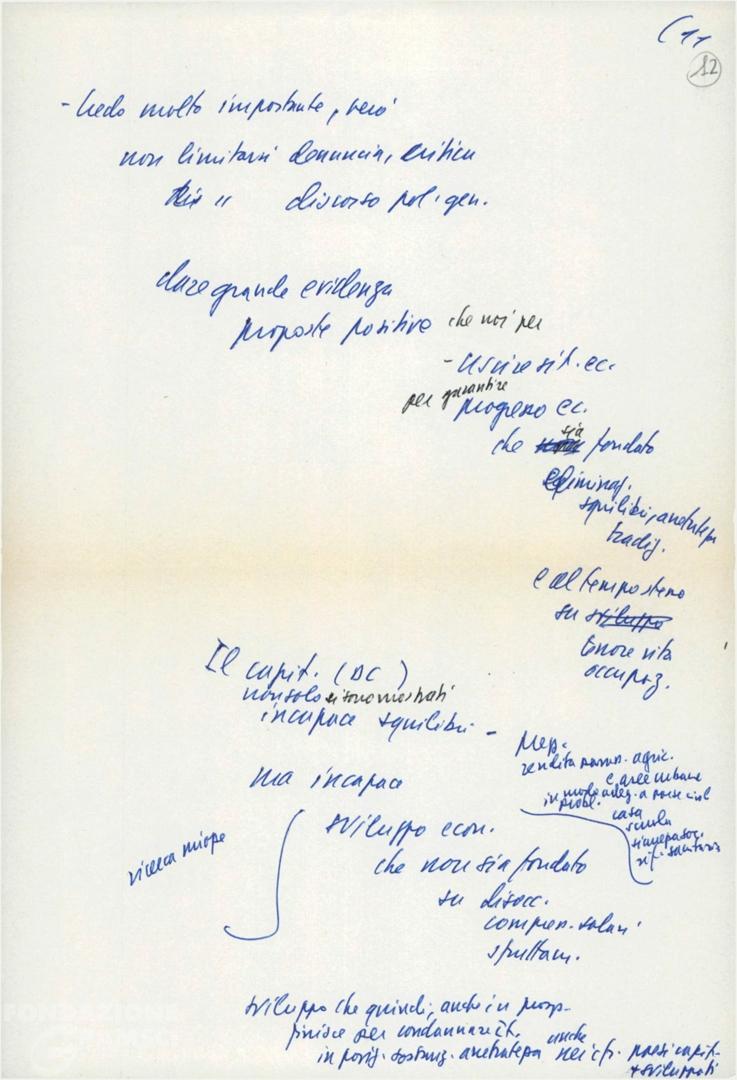 ( 11
12
- Credo molto importante, però
non limitarsi denuncia, critica
" discorso pol. gen.
dare grande evidenza
proposte positive che noi per
- uscire sit. ec.
per garantire
progresso ec.
che sia fondato
eliminaz.
squilibri, arretratezze
tradiz.
e al tempo stesso
su sviluppo
tenore vita
occupaz.
Il capit. (DC)
non solo si sono mostrati
incapace squilibri -
Mezz.
rendita parass. agric.
e aree urbane
in modo adeg. a paese civile
probl.
casa
scuola
sanitaria
ma incapace
ricerca miope
sviluppo econ.
che non sia fondato
su disocc.
compress. salari
sfruttam.
sviluppo che quindi, anche in prosp.
finisce per condannare It.
in posiz. sostanz. arretratezza anche nei cfr. paesi capit.
+ sviluppati
FONDAZIONE